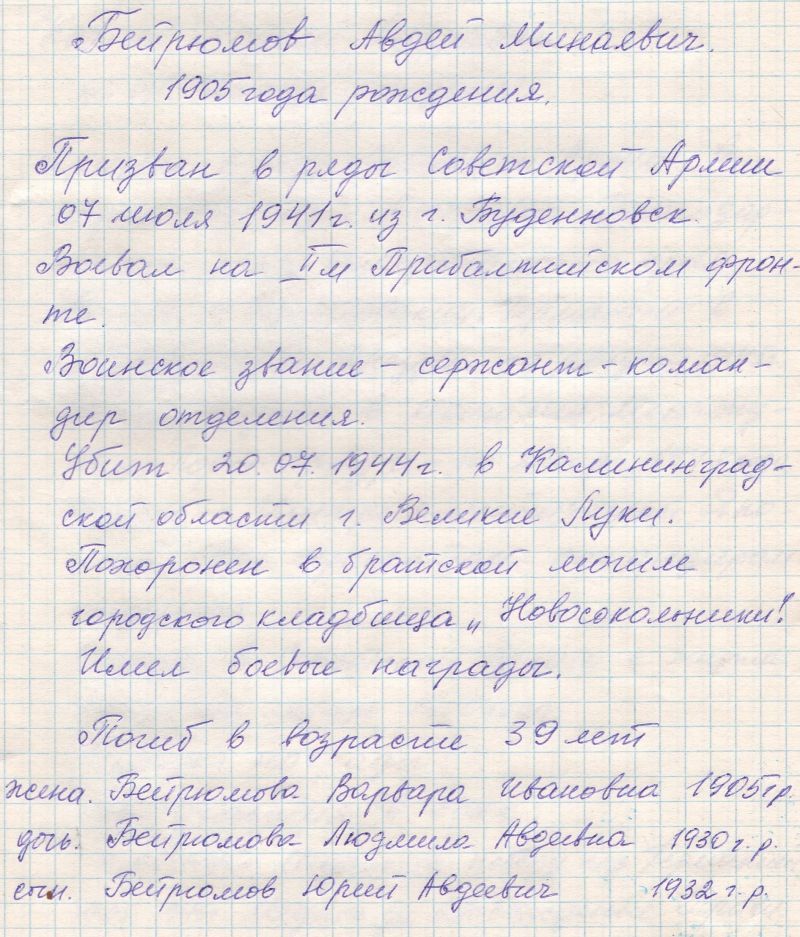 Бейрюмов Авдей Минаевич.
1905 года рождения.
Призван в ряды Советской Армии
07 июля 1941 г. из г. Буденновск.
Воевал на IIм Прибалтийском фрон-
те.
Воинское звание - сержант - коман-
дир отделения.
Убит 20.07.1944 г. в Калининград-
ской области г. Великие Луки.
Похоронен в братской могиле
городского кладбища „Новосокольники".
Имел боевые награды.
Погиб в возрасте 39 лет
жена. Бейрюмова Варвара Ивановна 1905 г.р.
дочь. Бейрюмова Людмила Авдеевна 1930 г.р.
сын. Бейрюмов Юрий Авдеевич 1932 г.р.